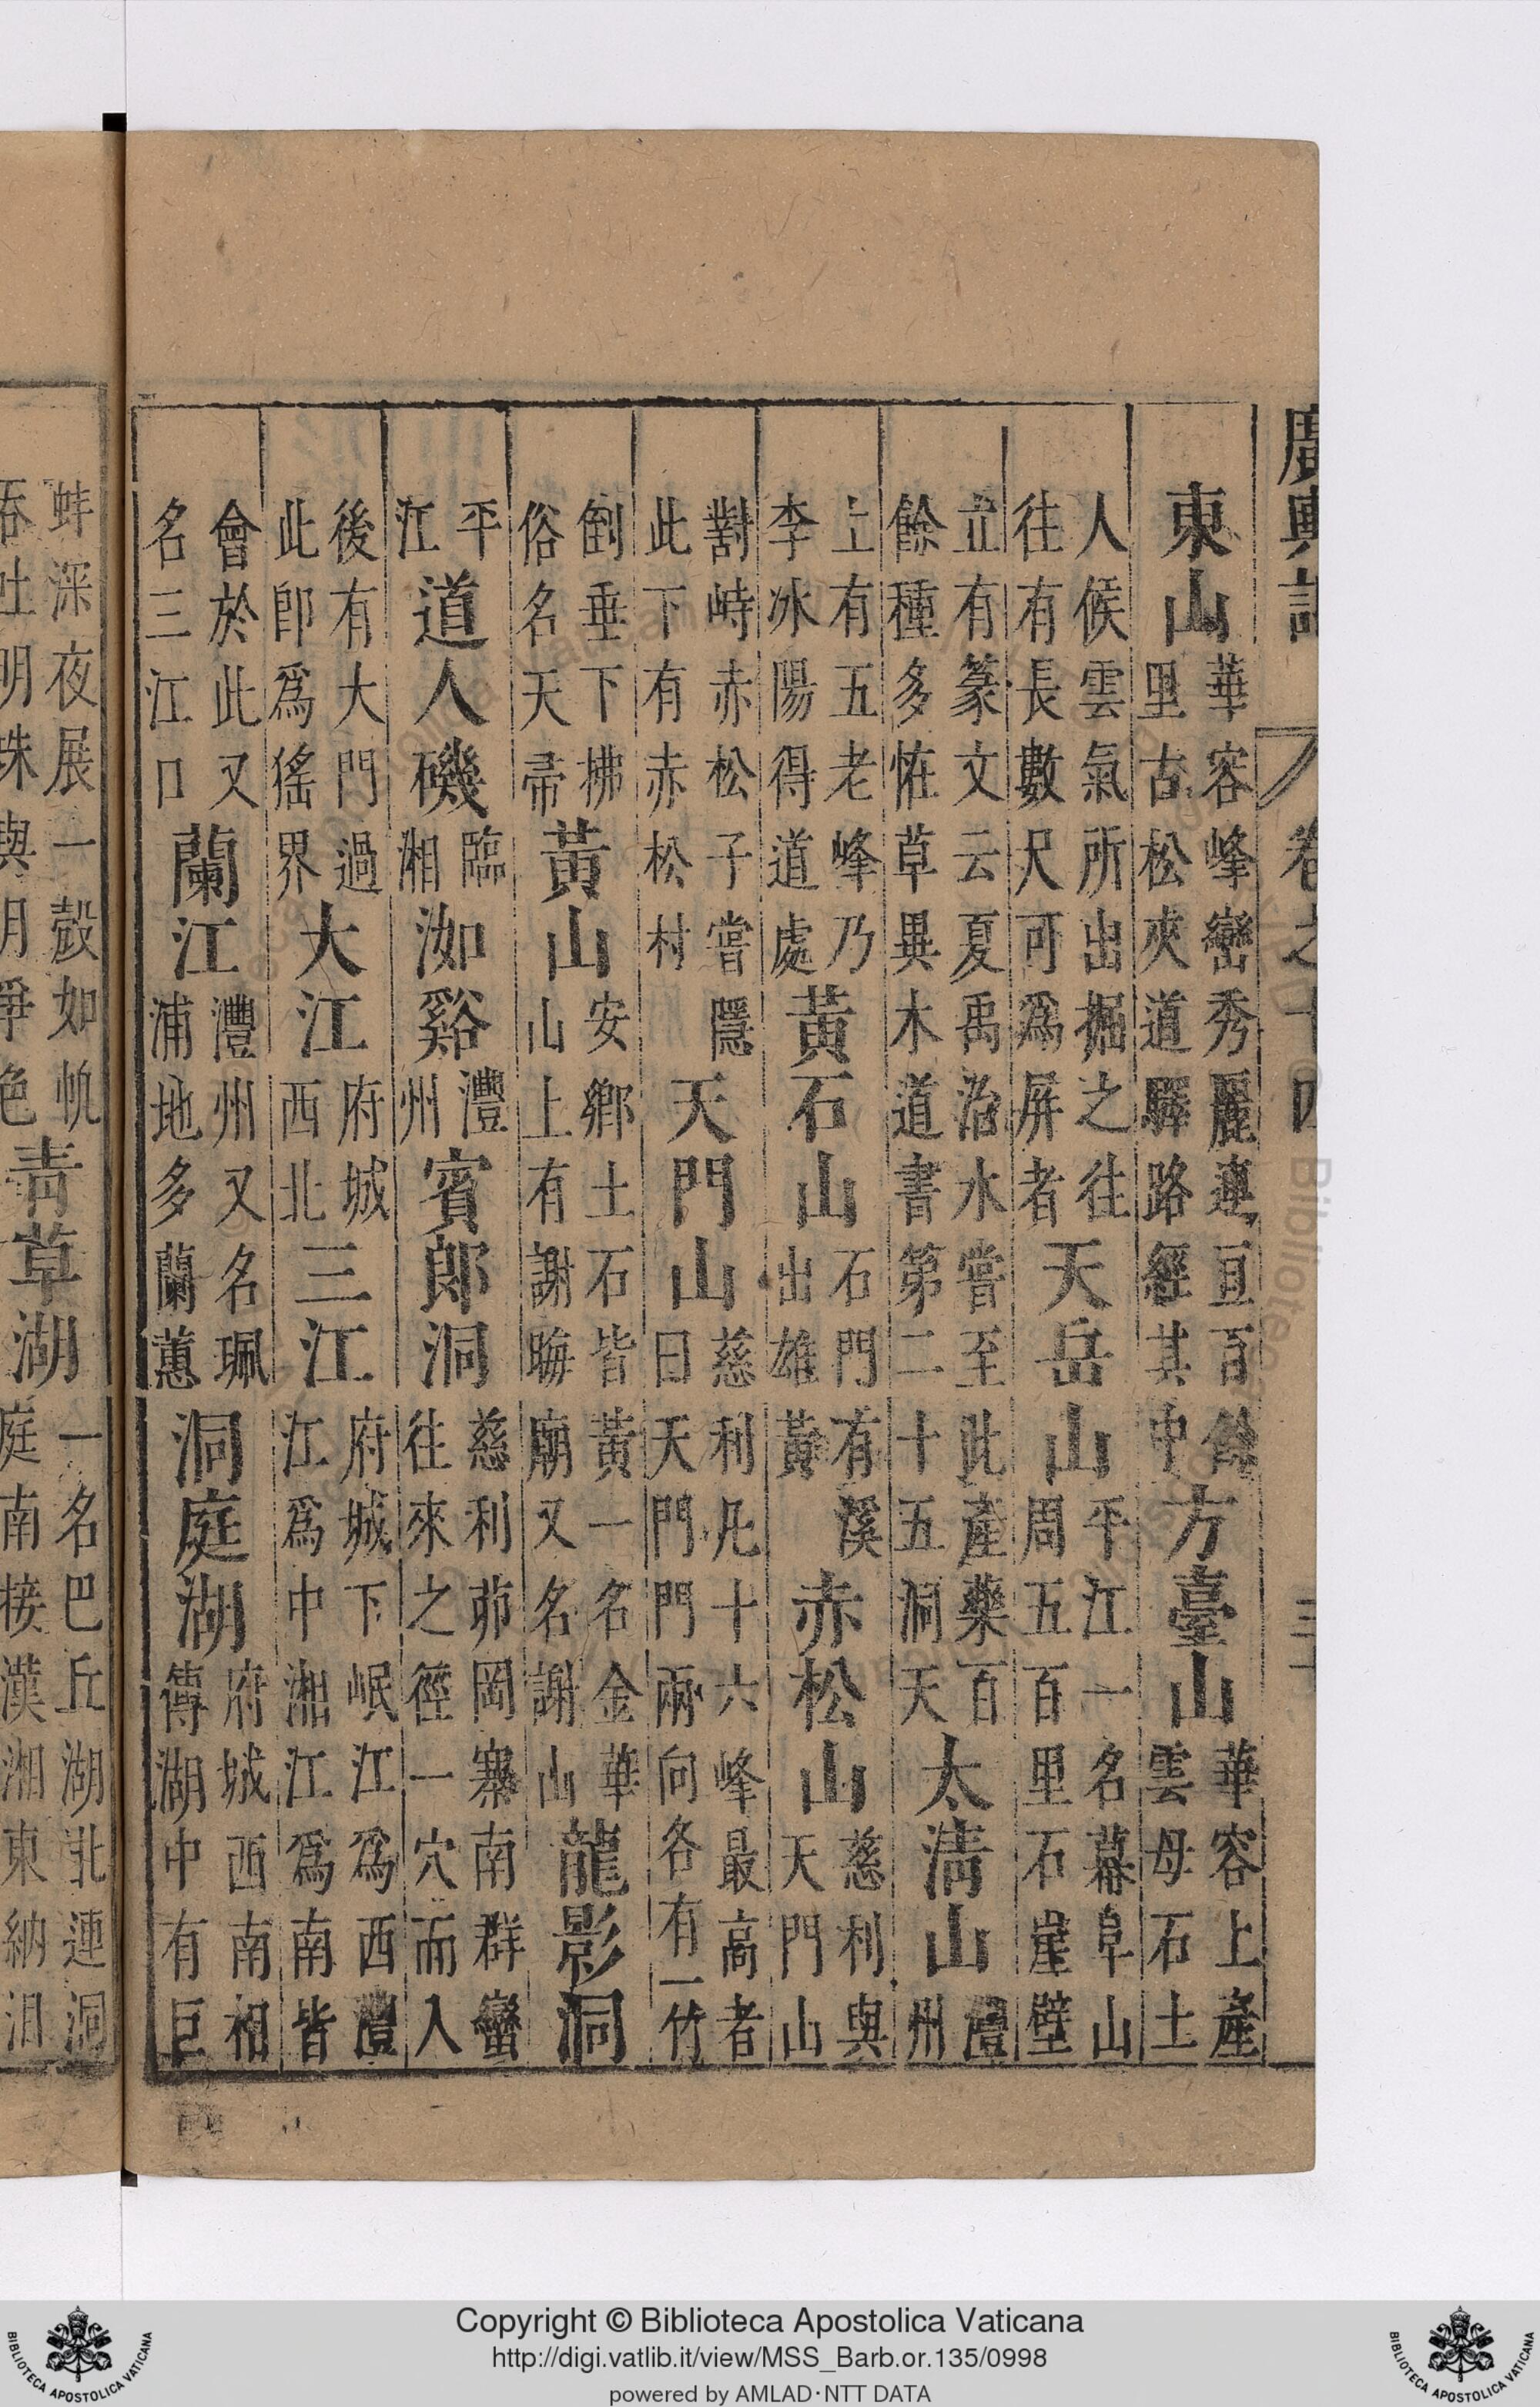 廣輿記 卷之十四
東山 華容峰巒秀麗連亘百餘里古松夾道驛路經其中 方臺山 華容上產雲母石土
人候雲氣所出掘之往往有長數尺可爲屏者 天岳山 平江一名幕阜山周五百里石崖壁
立有篆文云夏禹治水嘗至此產藥百餘種多恠草異木道書第二十五洞天 太淸山 澧州
上有五老峰乃李冰陽得道處 黃石山 石門有溪出雄黃 赤松山 慈利與天門山
對峙赤松子嘗隱此下有赤松村 天門山 慈利凡十六峰最高者曰天門門兩向各有一竹
倒垂下拂俗名天帚 黃山 安鄉土石皆黃一名金華山上有謝晦廟又名謝山 龍影洞
平江 道人磯 臨湘 洳谿 澧州 賓郎洞 慈利茆岡寨南群蠻往來之徑一穴而入
後有大門過此卽爲猺界 大江 府城西北 三江 府城下岷江爲西澧江爲中湘江爲南皆
會於此又名三江口 蘭江 澧州又名珮浦地多蘭蕙 洞庭湖 府城西南相傳湖中有巨
蚌深夜展一殼如帆吞吐明珠與月爭色 靑草湖 一名巴丘湖北連洞庭南接漢湘東納汨
Copyright © Biblioteca Apostolica Vaticana
http://digi.vatlib.it/view/MSS_Barb.or.135/0998
powered by AMLAD·NTT DATA
BIBLIOTECA APOSTOLICA VATICANA
BIBLIOTECA APOSTOLICA VATICANA